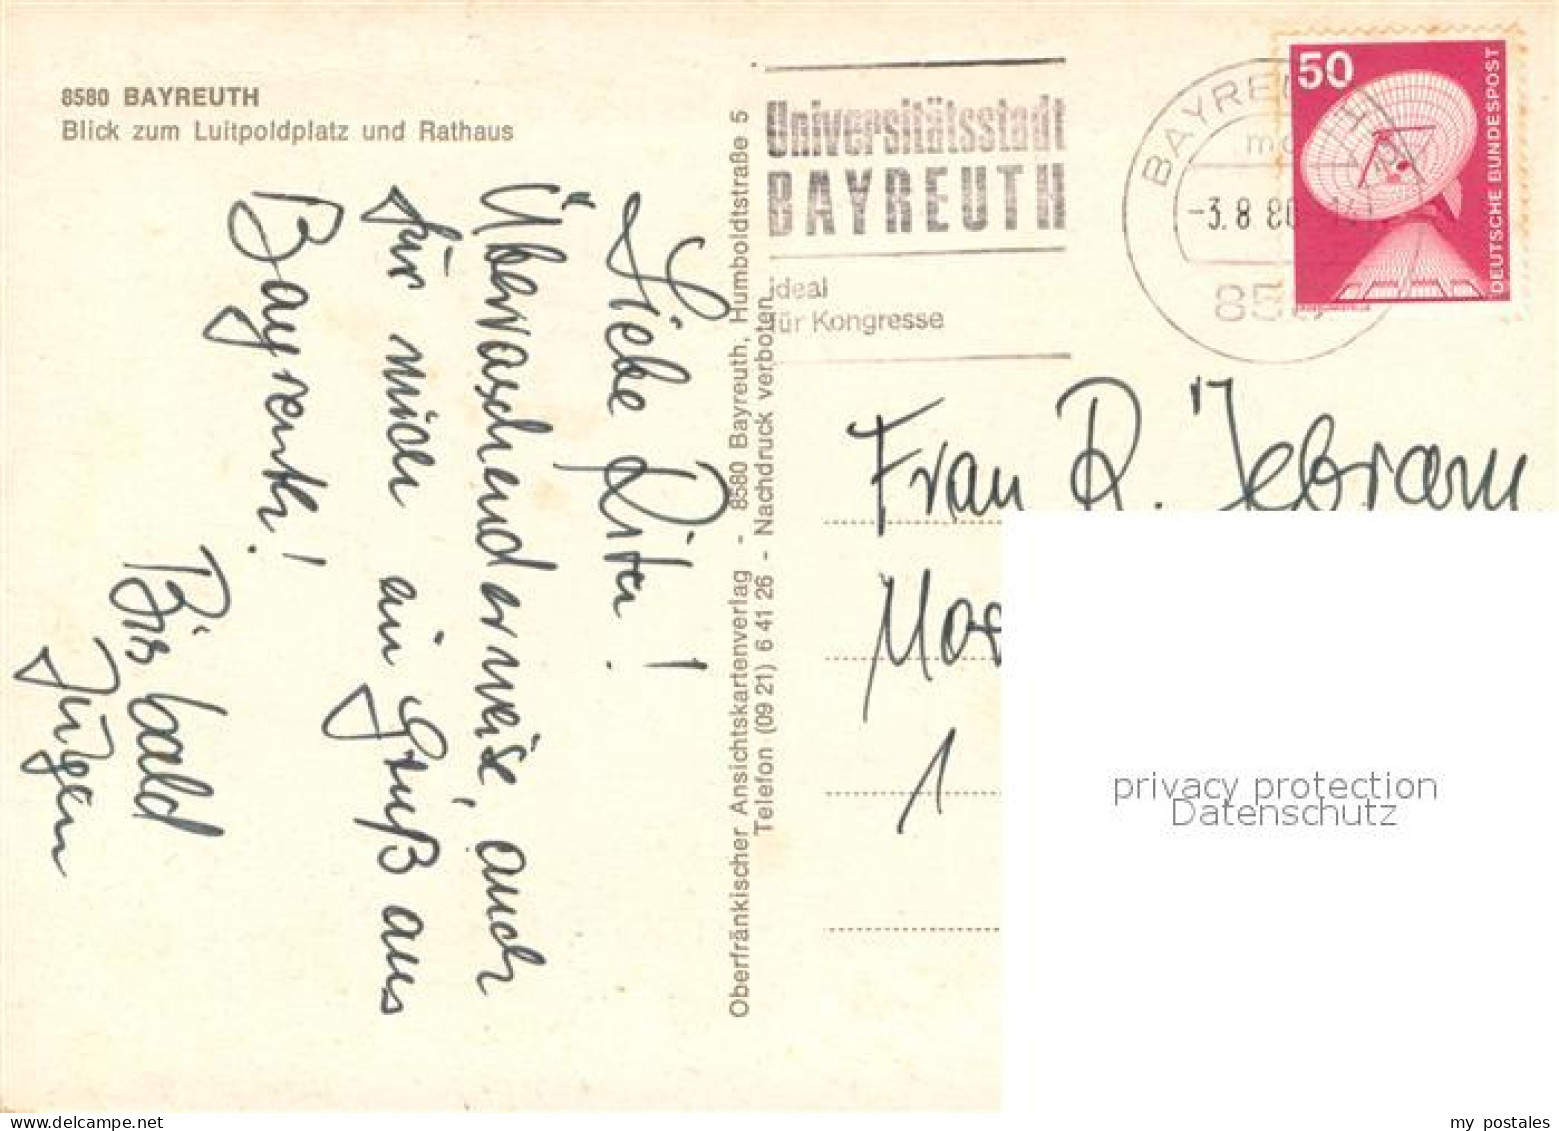 8580 BAYREUTH
Blick zum Luitpoldplatz und Rathaus
Liebe Rita!
Überraschenderweise, auch
für mich ein Gruß aus
Bayreuth!
Bis bald
Jürgen
Oberfränkischer Ansichtskartenverlag - 8580 Bayreuth, Humboldtstraße 5
Telefon (09 21) 6 41 26 - Nachdruck verboten
Universitätsstadt
BAYREUTH
ideal
für Kongresse
-3.8.80
50
DEUTSCHE BUNDESPOST
Frau R. Jebram
1
privacy protection
Datenschutz
my postales